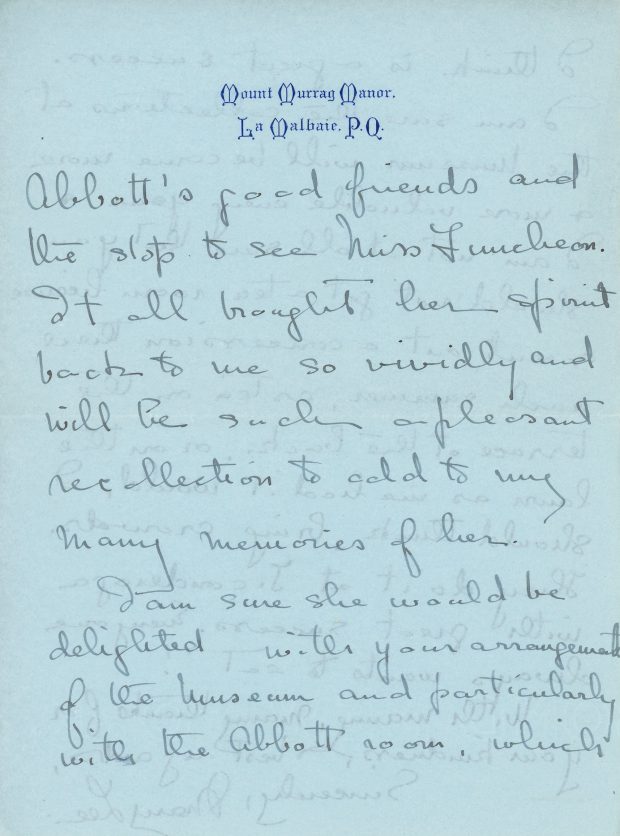 Mount Murray Manor.
La Malbaie. P.Q.
Abbott's good friends and
the stop to see Miss Luncheon.
It all brought her spirit
back to me so vividly and
will be such a pleasant
recollection to add to my
many memories of her.
I am sure she would be
delighted with your arrangement
of the Museum and particularly
with the Abbott room, which